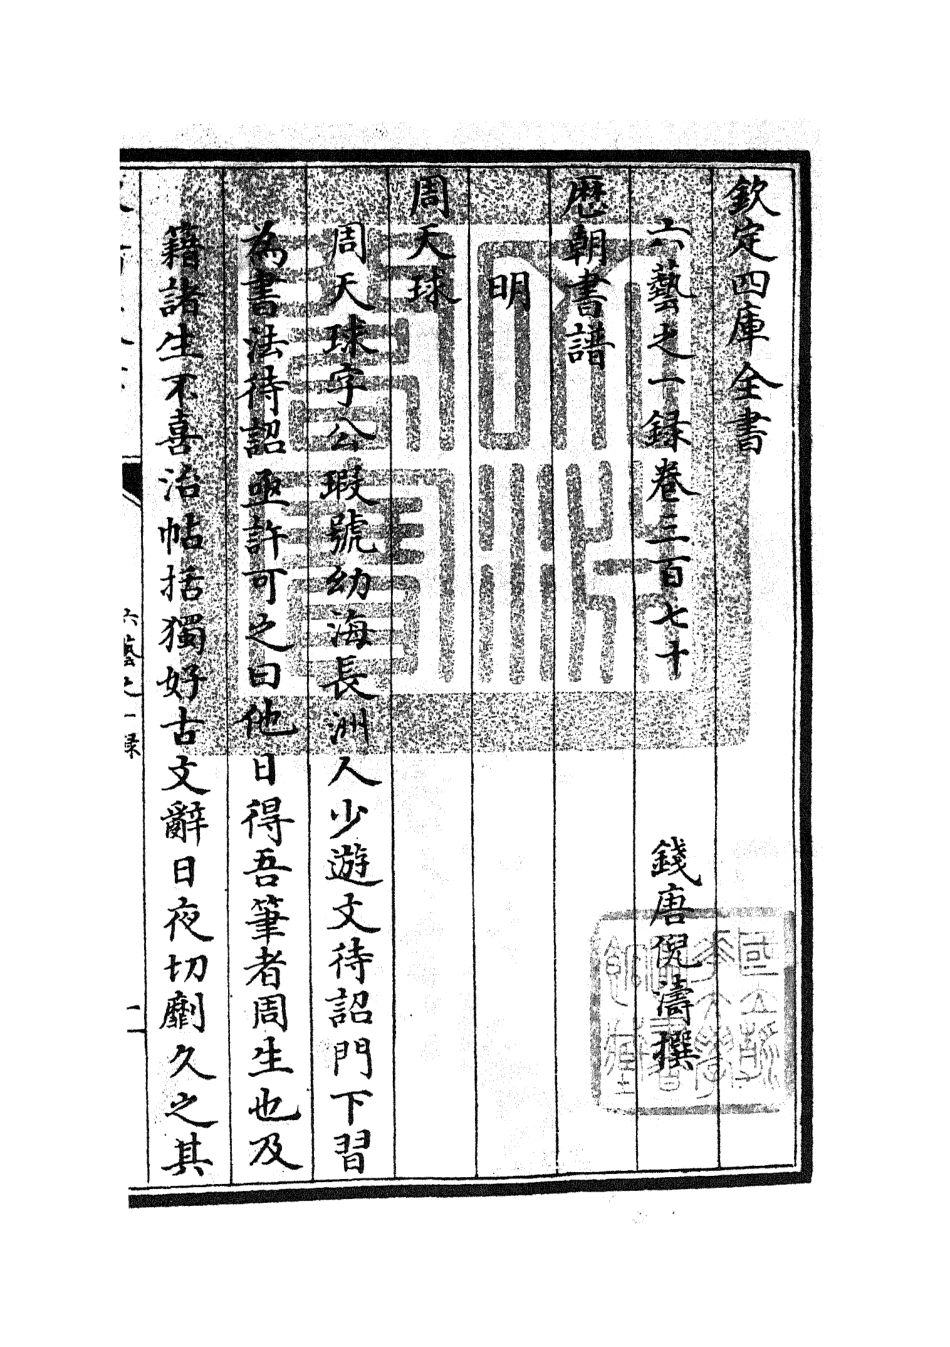 欽定四庫全書
六藝之一録卷三百七十
錢唐倪濤撰
歴朝書譜
明
周天球
周天球字公瑕號幼海長洲人少遊文待詔門下習
為書法待詔亟許可之曰他日得吾筆者周生也及
籍諸生不喜治帖括獨好古文辭日夜切劘久之其
六藝之一録